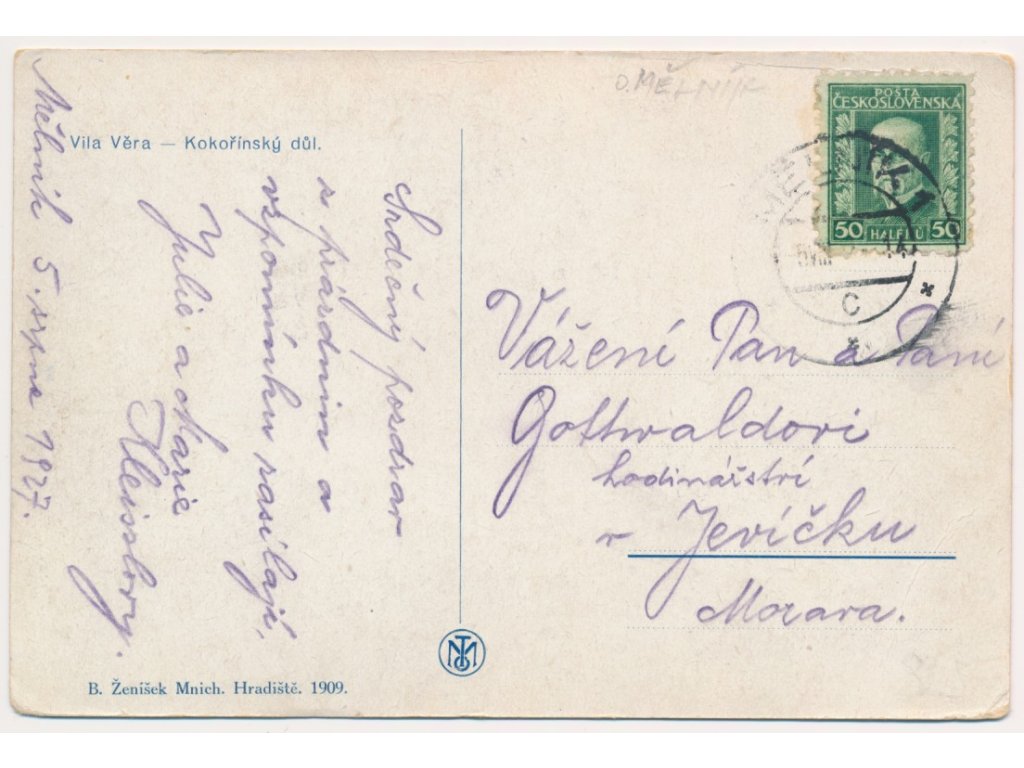 O. MĚLNÍK
Vila Věra — Kokořínský důl.
Mělník 5. srpna 1927.
Srdečný pozdrav
s prázdnin a
vzpomínku zasílají,
Julie a Marie
POSTA
ČESKOSLOVENSKÁ
50 HALÉŘŮ 50
C
Vážení Pan a Paní
Gottwaldovi
hodinářství
v Jevíčku
Morava.
B. Ženíšek Mnich. Hradiště. 1909.